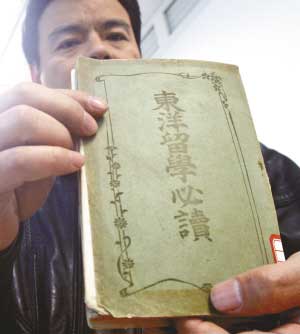 東洋留學必讀